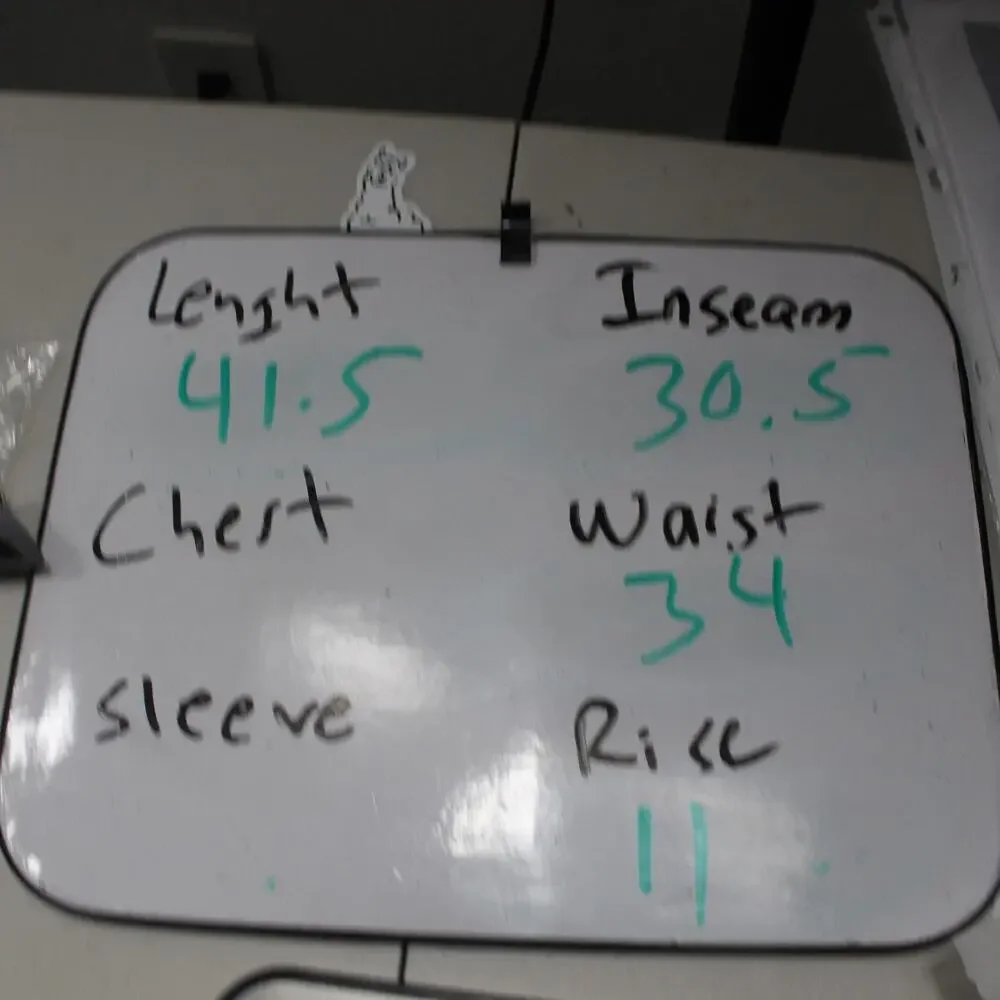 Lenght
41.5
Chest
Sleeve
Inseam
30.5
Waist
34
Rise
11